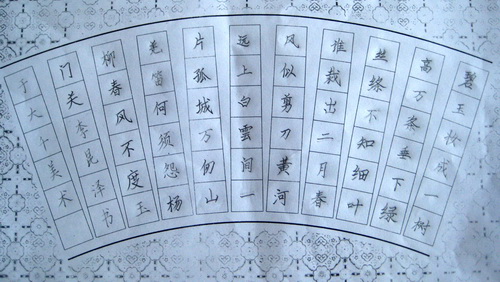 碧玉妆成一树
高万条垂下绿
丝绦不知细叶
谁裁出二月春
风似剪刀黄河
远上白雲间一
片孤城万仞山
羌笛何须怨杨
柳春风不度玉
门关李昆泽书
于大卜美术